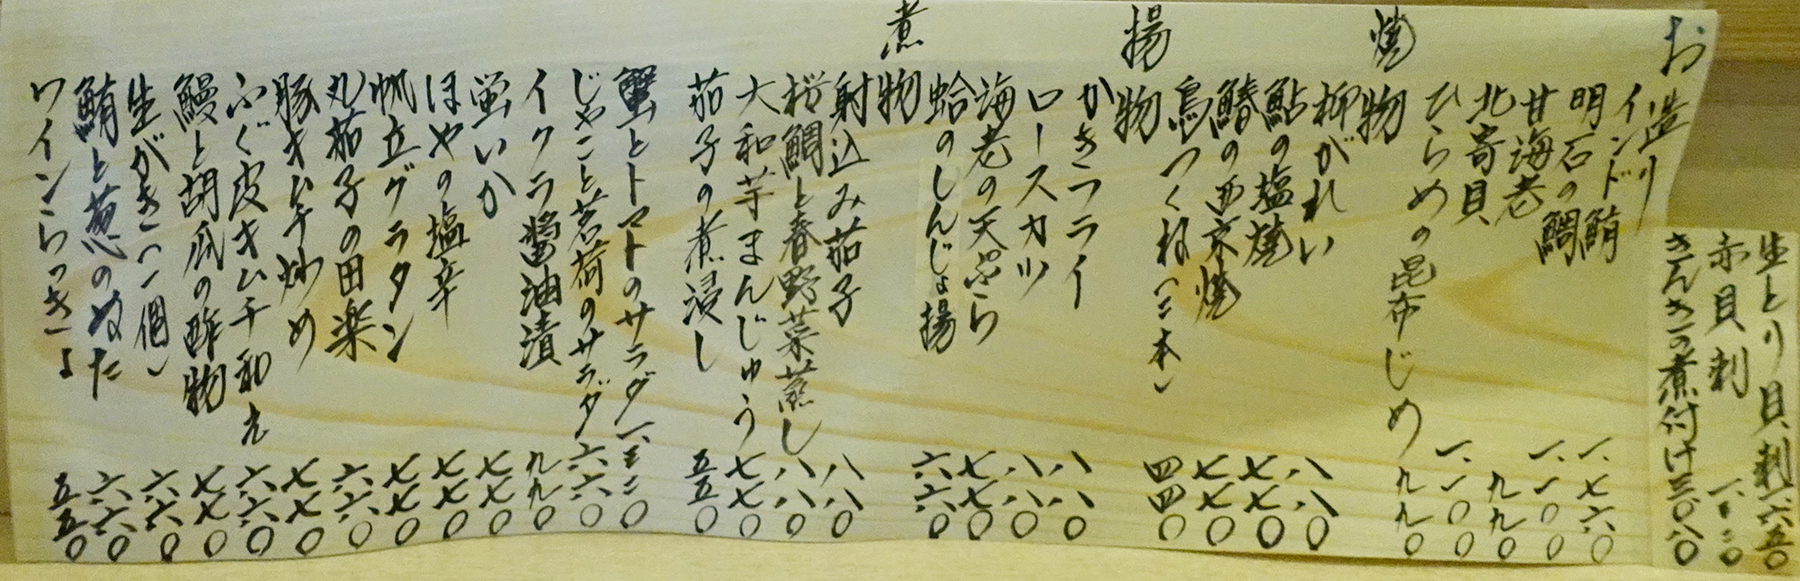 生とり貝刺 一、六五〇
赤貝刺
きんきの煮付け 三、〇八〇
お造り
インド鮪 一、七六〇
明石の鯛 一、一〇
甘海老 九九〇
北寄貝 一、一〇
ひらめの昆布じめ 九九〇
焼物
柳がれい 八八〇
鮎の塩焼 七七〇
鰆の西京焼 七七〇
鳥つくね(二本) 四四〇
揚物
かきフライ 八八〇
ロースカツ 八八〇
海老の天ぷら 七七〇
蛤のしんじょ揚 六六〇
煮物
射込み茄子 八八〇
桜鯛と春野菜蒸し 八八〇
大和芋まんじゅう 七七〇
茄子の煮浸し 五五〇
蟹とトマトのサラダ
じゃこと茗荷のサラダ 六六〇
イクラ醤油漬 九九〇
蛍いか 七七〇
ほやの塩辛 七七〇
帆立グラタン 七七〇
丸茄子の田楽 六六〇
豚キムチ炒め 七七〇
ふぐ皮キムチ和え 六六〇
鰻と胡瓜の酢物 七七〇
生がき(一個) 六六〇
鮪と葱のぬた 六六〇
ワインらっきょ 五五〇